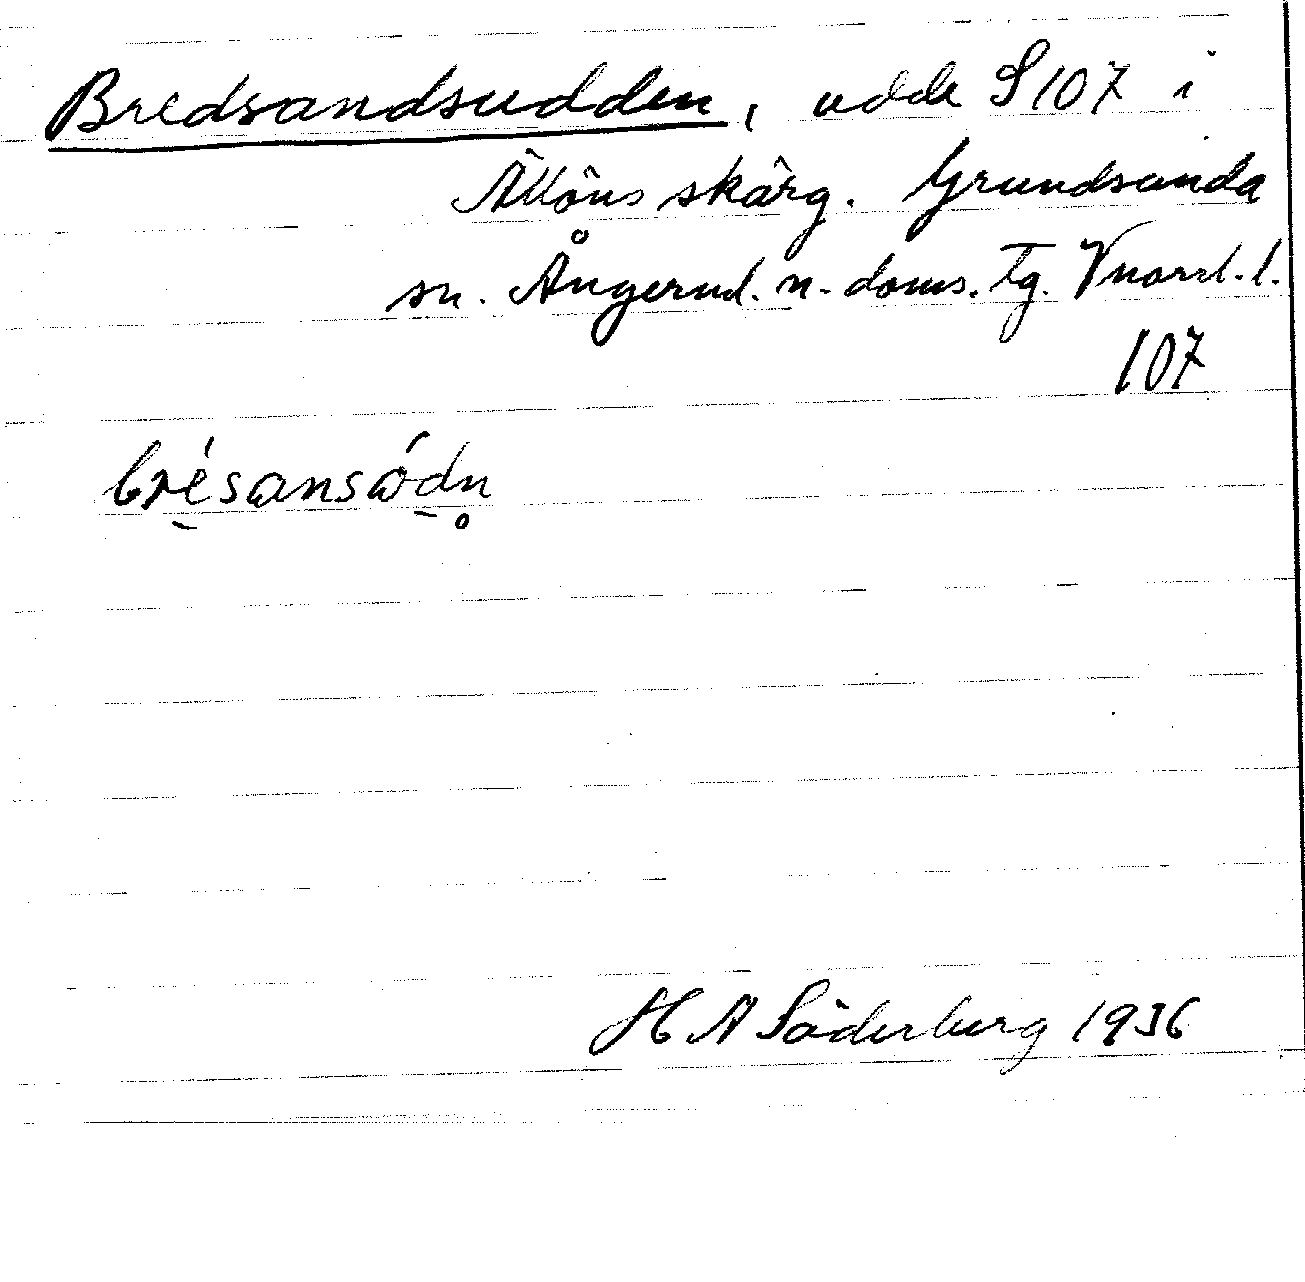 Bredsandsudden, udde S 107 i
Ällöns skärg. Grundsunda
sn. Ångerml. n. doms. Tg. Vnorrl. l.
107
brésansódn
H A Söderberg 1936